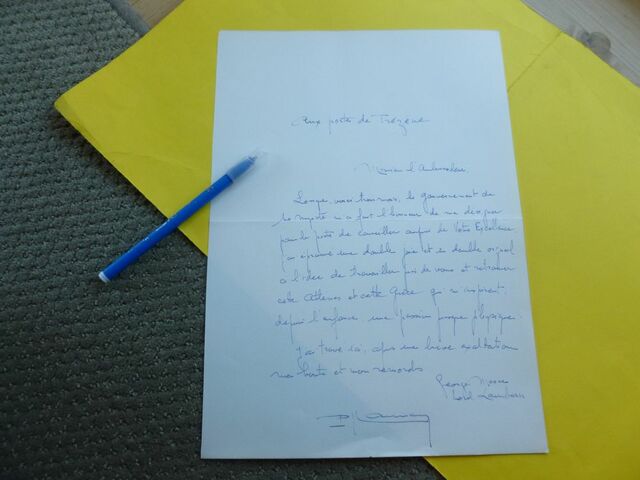 Aux portes de Trézène
Monsieur l'Ambassadeur,
Lorsque, voici trois mois, le gouvernement de
Sa Majesté m'a fait l'honneur de me désigner
pour le poste de conseiller auprès de Votre Excellence
j'ai éprouvé une double joie et un double orgueil
à l'idée de travailler près de vous et retrouver
cette Athènes et cette Grèce qui m'inspirent,
depuis l'enfance, une passion presque physique.
J'ai trouvé ici, après une brève exaltation
ma honte et mon remords
George